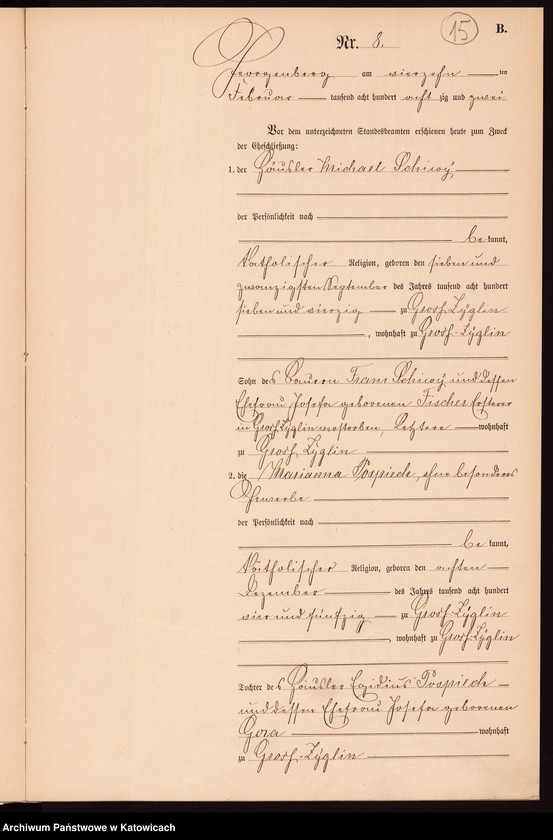 15
B.
Nr. 8.
Georgenberg am vierzehn ten
Februar tausend acht hundert acht zig und zwei
Vor dem unterzeichneten Standesbeamten erschienen heute zum Zweck
der Eheschließung:
1. der Häusler Michael Schiwÿ
der Persönlichkeit nach
be kannt,
katholischer Religion, geboren den sieben und
zwanzigsten September des Jahres tausend acht hundert
sieben und vierzig zu Groß-Zÿglin
, wohnhaft zu Groß-Zÿglin
Sohn des Bauern Franz Schiwÿ und dessen
Ehefrau Josefa geborenen Fischer Ersterer
in Groß Zÿglin verstorben, Letztere wohnhaft
zu Groß Zÿglin
2. die Marianna Pospiech, ohne besonderes
Gewerbe
der Persönlichkeit nach
be kannt,
katholischer Religion, geboren den achten
Dezember des Jahres tausend acht hundert
vier und fünfzig zu Groß-Zÿglin
, wohnhaft zu Groß-Zÿglin
Tochter des Häusler Egidius Pospiech
und dessen Ehefrau Josefa geborenen
Gora wohnhaft
zu Groß-Zÿglin
Archiwum Państwowe w Katowicach